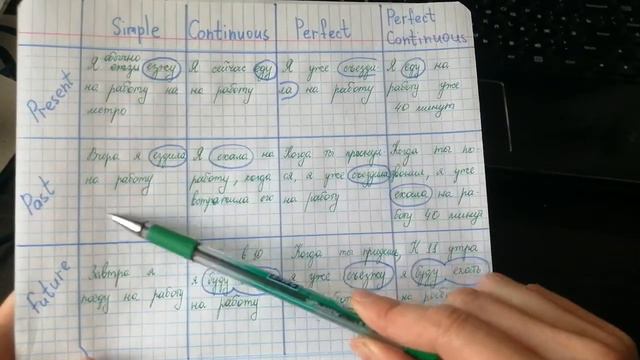 Simple
Continuous
Perfect
Perfect
Continuous
Present
Я обычно
езжу
на работу на
метро
Я сейчас еду
на работу
Я уже съезди
ла на работу
Я еду на
работу уже
40 минут
Past
Вчера я ездила
на работу
Я ехала на
работу, когда
встретила его
Когда ты проснул-
ся, я уже съездила
на работу
Когда ты по-
звонил, я уже
ехала на ра-
боту 40 минут
Future
Завтра я
поеду на работу
в 10
я буду
на работу
Когда ты придешь,
я уже съезжу
К 11 утра
я буду ехать